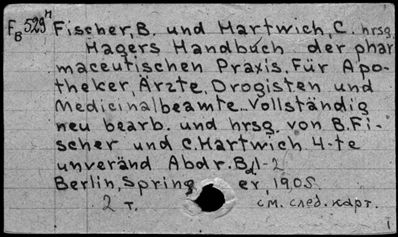 F_B 529 н Fischer, B. und Hartwich, C. hrsg.
Hagers Handbuch der phar
maceutischen Praxis. Für Apo-
theker, Ärzte, Drogisten und
Medicinalbeamte. Vollständig
neu bearb. und hrsg. von B. Fi-
scher und C. Hartwich 4-te
unveränd Abdr. Bd 1-2
Berlin, Springer, 1905
2 т. см. след. карт.